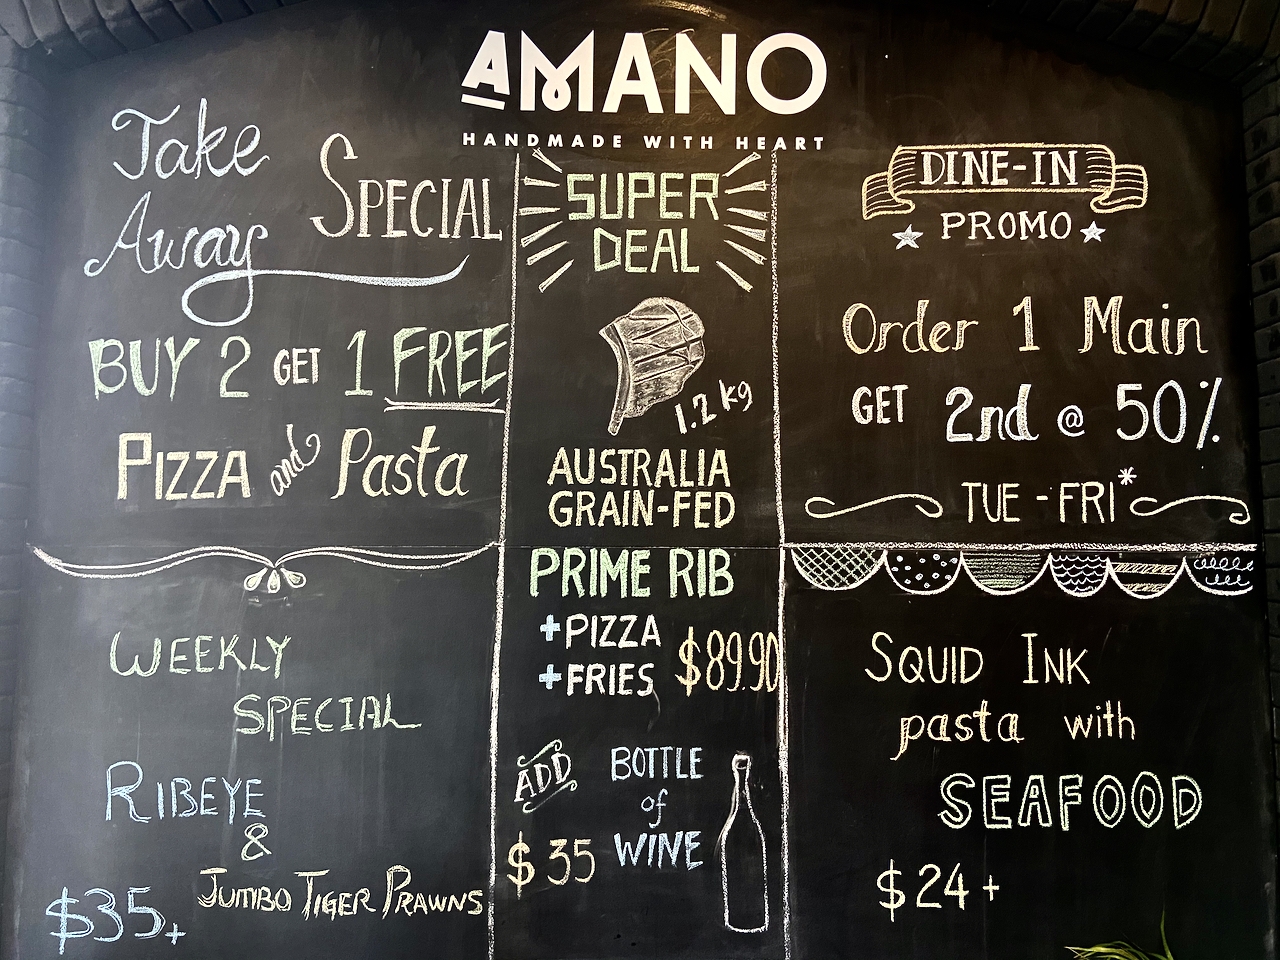 AMANO
HANDMADE WITH HEART
Take
Away
SPECIAL
BUY 2 GET 1 FREE
PIZZA and Pasta
WEEKLY
SPECIAL
RIBEYE
&
JUMBO TIGER PRAWNS
$35+
SUPER
DEAL
1.2 kg
AUSTRALIA
GRAIN-FED
PRIME RIB
+PIZZA
+FRIES
$89.90
ADD
BOTTLE
of
WINE
$35
DINE-IN
PROMO
Order 1 Main
GET 2nd @ 50%
TUE - FRI*
SQUID INK
pasta with
SEAFOOD
$24+